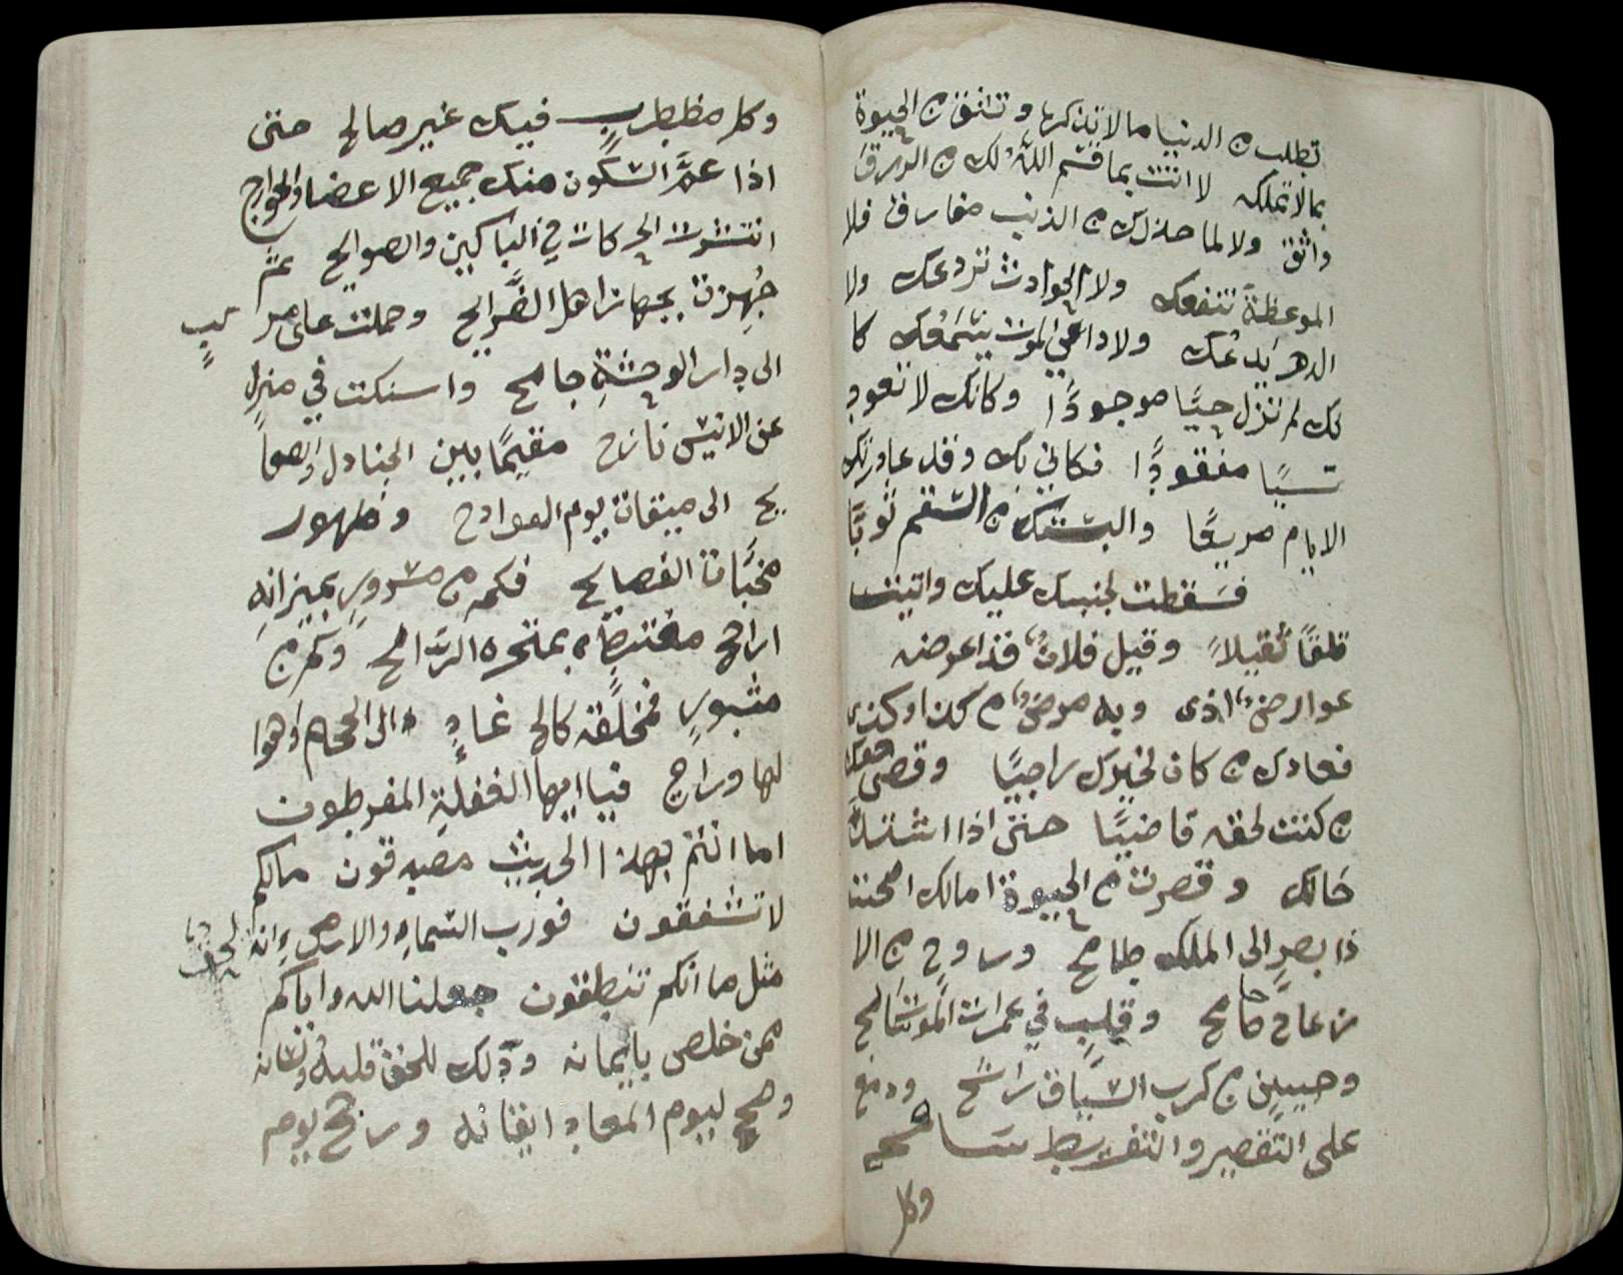 تطلب من الدنيا ما لا تدركها وتثق من الحيوة
بما لا تملكه لا انت بما قسم اللهُ لك من الرزق
واثق ولا لما حذرك من الذنب مفارق فلا
الموعظةَ تنفعك ولا الحوادث تردعك ولا
الدهر يدعُك ولا داعي الموت يسمعُك كا
نك لم تزل حيًّا موجودًا وكانك لا تعود
نسيًا مفقودًا فكاني بك وقد عاورتك
الايام مريضًا والبستك من السقم ثوبًا
فسَقطت لجنبك عليك واتيت
قلقًا ثقيلاً وقيل فلانٌ قد اعرضه
عوارضُ اذى وبه مرضٌ من كذا وكذى
فعادك من كان لخيرك راجيًا وقضى حقك
من كنت لحقه قاضيًا حتى اذا اشتدَّ
حَالك وقصرت من الحيوة امالك اصحت
ذا بصرٍ الى الملك طامح وروحٍ من الا
وقلبٍ في غمرات الموت سَابح
وجبينٍ من كرب السِّياق راشح ودمع
على التقصير والتفريط سَافح
وكل
وكل مظطربٍ فيك غير صالح حتى
اذا عمَّ السكون منك جميع الاعضا والجوارح
انتشرت الحركات في الباكين والصوايح ثم
جُهزت بجهاز اهل الضَّرايح وحملت على مر كبٍ
الى دار الوحشةِ جامح واسنكت في منزل
عن الانيس نازح مقيمًا بين الجنادل والصفا
يح الى ميقات يوم الفوادح وظهور
مخبَّات الفضايح فكم من مسرورٍ بميزانهِ
اراجح مغتبطًا بمتجره الرَّابح وكم من
مثبورٍ فخلقه كالح غادٍ الى الجحام واهوا
لها ورايح فيا ايها الغفلةِ المفرطون
اما انتم بهذا الحديث مصدقون مالكم
لا تشفقون فورب السَّماءِ والارض إِنه لحق
مثل ما انكم تنطقون جعلنا الله واياكم
ممن خلص بايمانه وذلك للحق قلبهُ ولسانه
وصح ليوم المعاد ايقانه ورجح يوم